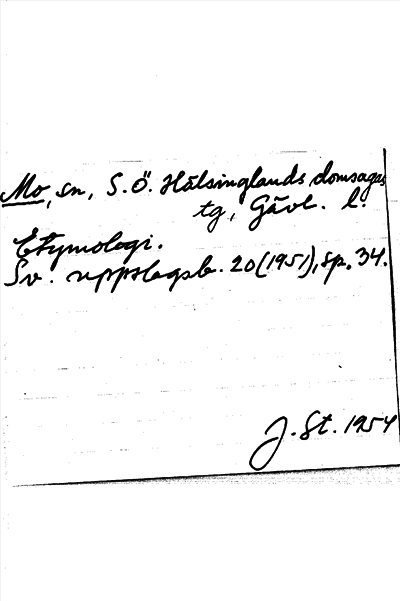 Mo, sn, S. Ö. Hälsinglands domsagas
tg, Gävl. l.
Etymologi.
Sv. uppslagsb. 20 (1951), sp. 34.
J. St. 1954